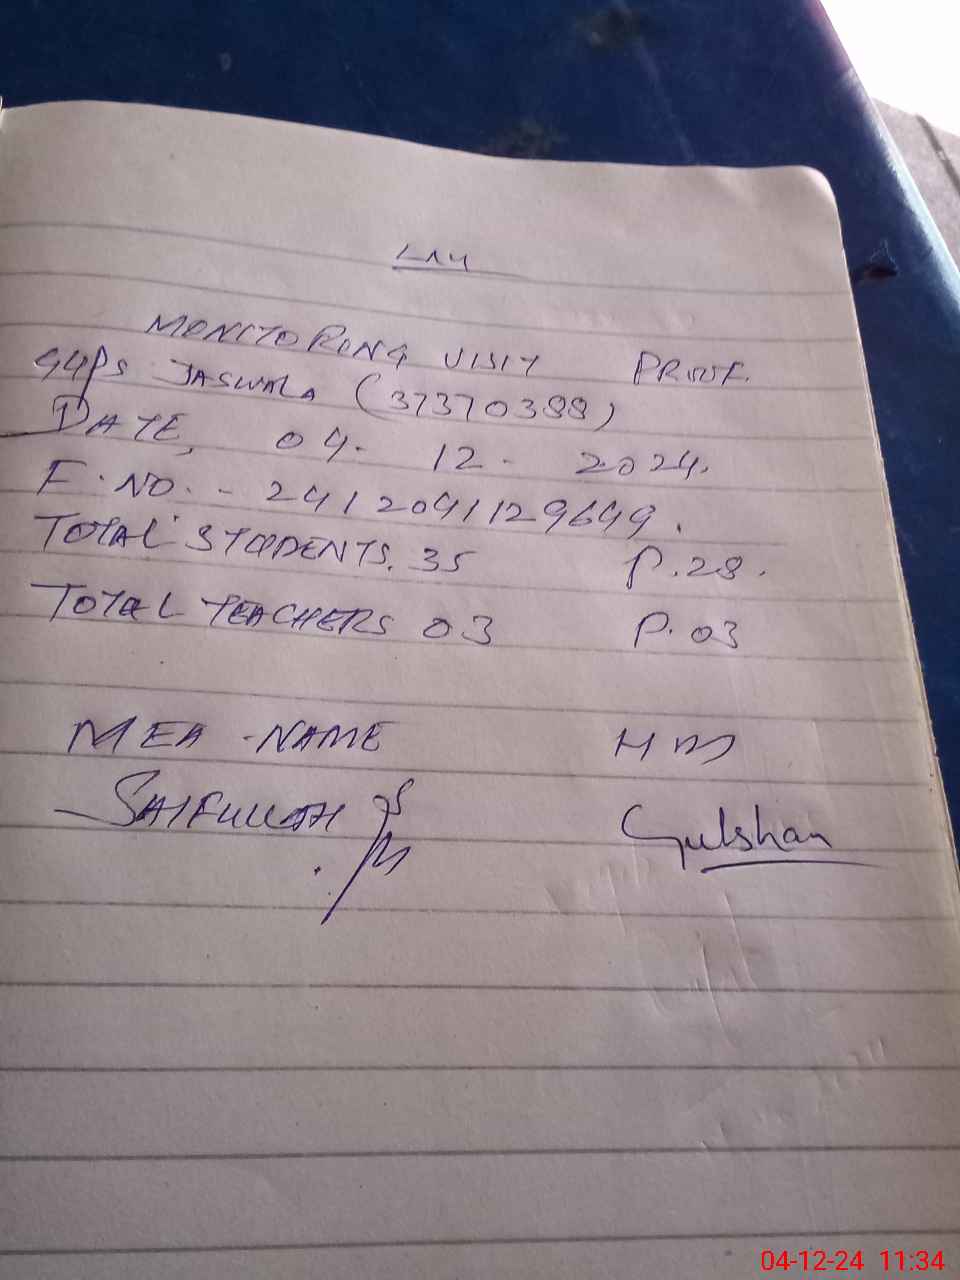 MONITORING VISIT PROOF.
GGPS JASWALA (37370388)
DATE, 04. 12. 2024.
F. NO. - 2412041129649.
TOTAL STUDENTS. 35 P.28.
TOTAL TEACHERS 03 P.03
MEA -NAME HM
SAIFULLAH Gulshan
04-12-24 11:34